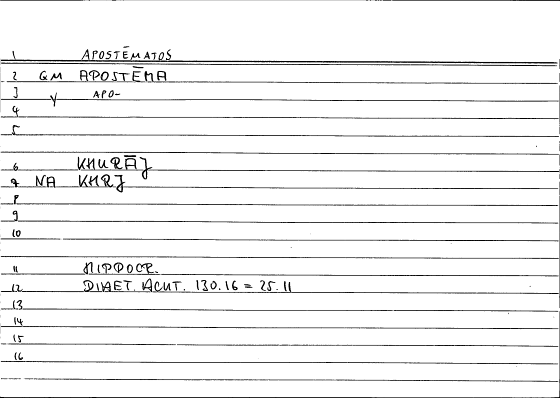 1 APOSTĒMATOS
2 GM APOSTĒMA
3 Y APO-
4
5
6 KHURĀJ
7 NA KHRJ
8
9
10
11 HIPPOCR.
12 DIAET. ACUT. 130.16 = 25.11
13
14
15
16